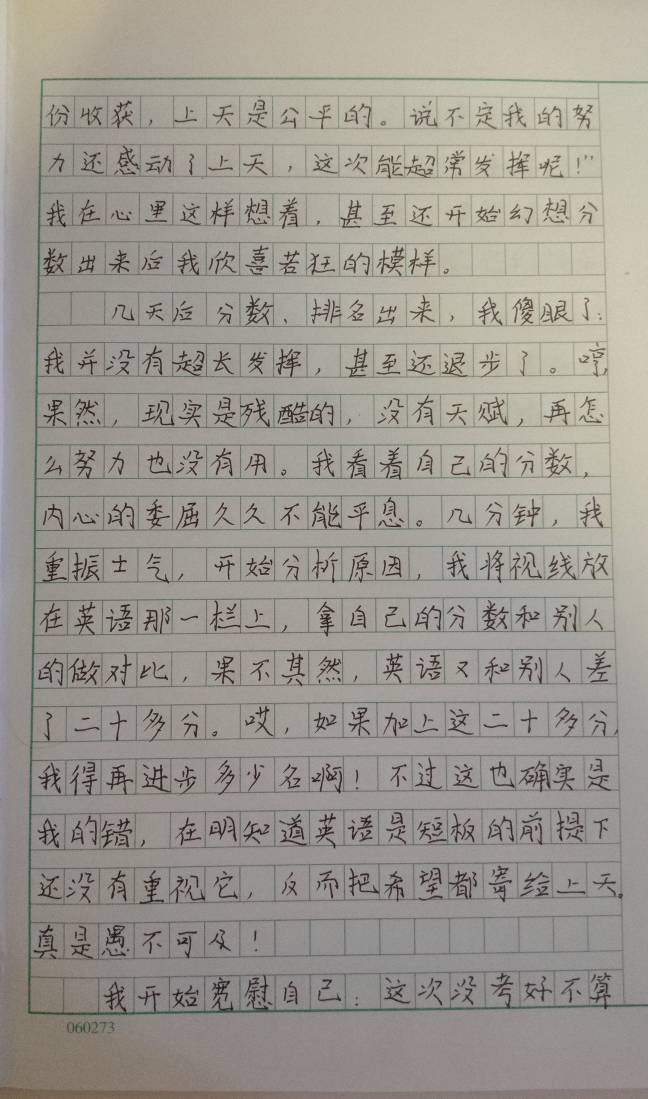 份收获，上天是公平的。说不定我的努
力还感动了上天，这次能超常发挥呢！”
我在心里这样想着，甚至还开始幻想分
数出来后我欣喜若狂的模样。
几天后分数、排名出来，我傻眼了：
我并没有超长发挥，甚至还退步了。哼，
果然，现实是残酷的，没有天赋，再怎
么努力也没有用。我看着自己的分数，
内心的委屈久久不能平息。几分钟，我
重振士气，开始分析原因，我将视线放
在英语那一栏上，拿自己的分数和别人
的做对比，果不其然，英语又和别人差
了二十多分。哎，如果加上这二十多分，
我得再进步多少名啊！不过这也确实是
我的错，在明知道英语是短板的前提下
还没有重视它，反而把希望都寄给上天。
真是愚不可及！
我开始宽慰自己：这次没考好不算
060273